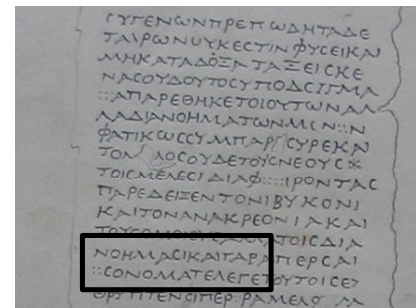 ϹΥΓΕΝΩΝΠΡΕΠΩΔΗΤΑΔΕ
ΤΑΙΡΩΝΟΥΚΕϹΤΙΝΦΥϹΕΙΚΑΙ
ΜΗΚΑΤΑΔΟΞΑΤΑΞΕΙϹΚΕ
ΝΑϹΟΥΔΟΥΤΟϹΥΠΟΔϹΙΓΜΑ
ΑΠΑΡΕΘΗΚΕΤΟΙΟΥΤΩΝΑΛ
ΛΑΔΙΑΝΟΗΜΑΤΩΝΜ
ΦΑΤΙΚΩϹϹΥΜΠΑΡ ϹΥΡΕΚΑ
ΤΟΛ ΛΟϹΟΥΔΕΤΟΥϹΝΕΟΥϹ
ΤΟΙϹΜΕΛΕϹΙΔΙΑΦ ΙΡΟΝΤΑϹ
ΠΑΡΕΔΕΙΞΕΝΤΟΝΙΒΥΚΟΝΙ
ΚΑΙΤΟΝΑΝΑΚΡΕΟΝΙΑΚΑΙ
ΝΟΗΜΑϹΙΚΑΙΓΑΡΑΠΕΡϹΑΙ
ϹΟΝΟΜΑΤΕΛΕΓΕΤΟΥΤΟΙϹΕΥ